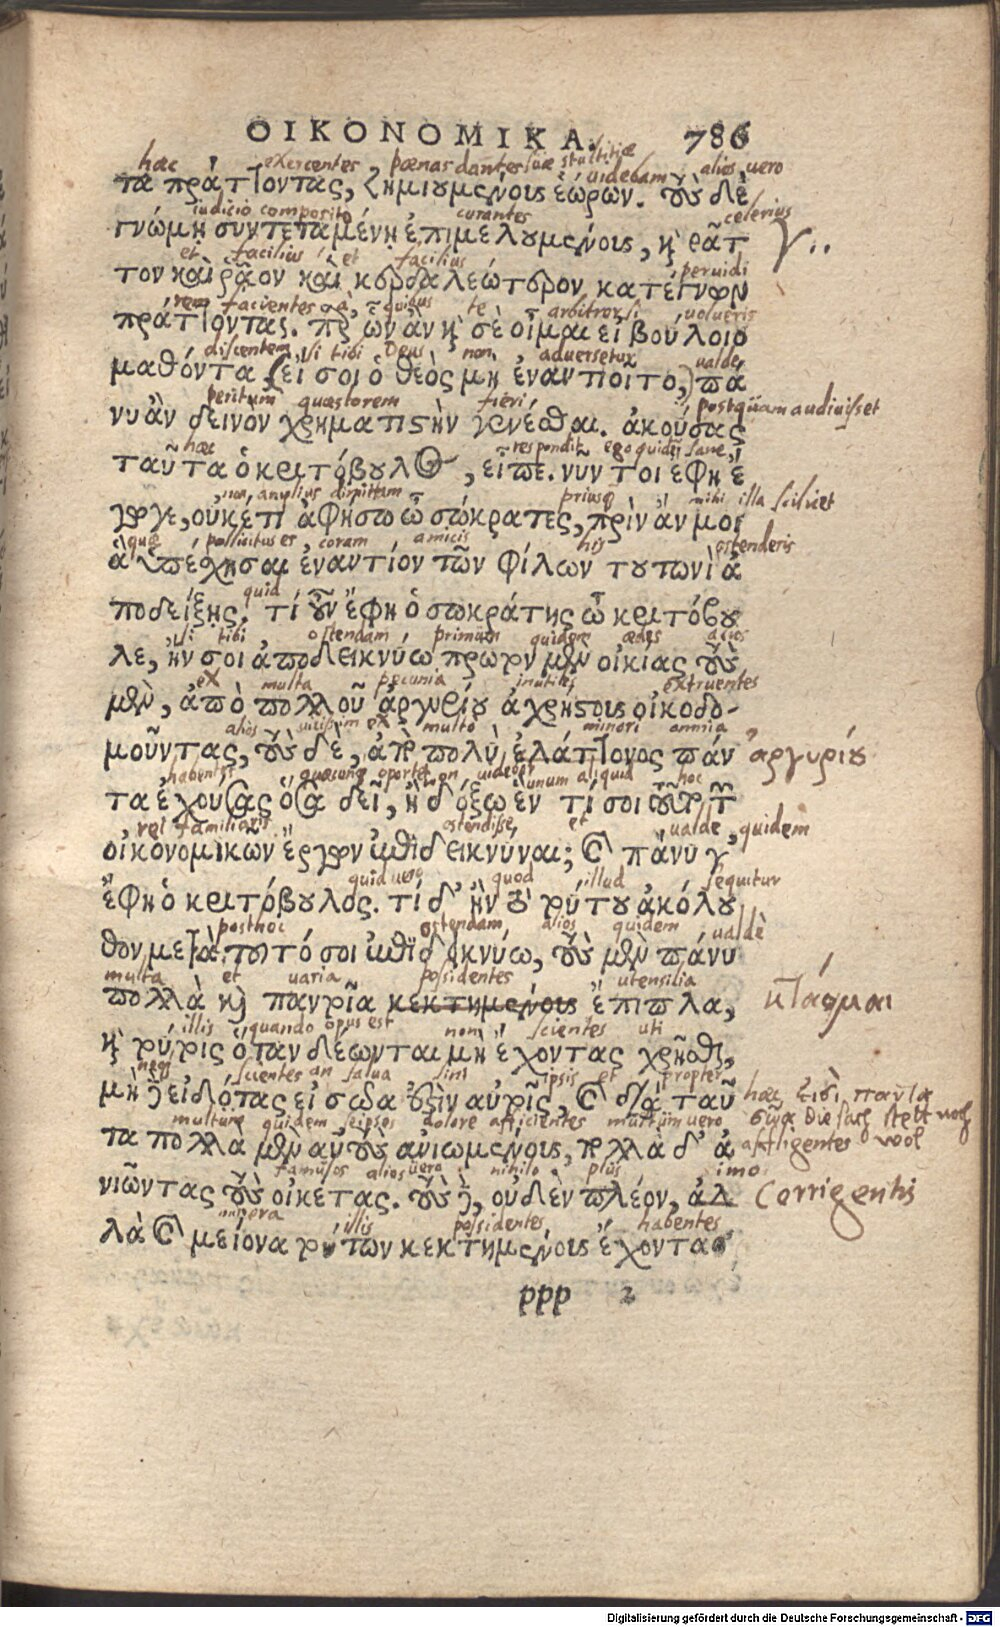 ΟΙΚΟΝΟΜΙΚΑ. 786
hæc exercentes pœnas dantes suæ stultitiæ uidebam alios uero
τα πράττοντας, ζημιουμένους ἑώρων. οὓς δὲ
iudicio composito curantes celerius
γνώμῃ συντεταμένῃ ἐπιμελουμένους, καὶ θᾶτ
et facilius et facilius peruidi
τον καὶ ῥᾷον καὶ κερδαλεώτερον κατέγνων
rem facientes à quibus te arbitror si uolueris
πράττοντας. παρ' ὧν ἂν καὶ σὲ οἶμαι εἰ βούλοιο
discentem si tibi Deus non aduersetur ualde
μαθόντα, (εἴ σοι ὁ θεὸς μὴ ἐναντιοῖτο,) πά
peritum quæstorem fieri postquam audiuisset
νυ ἂν δεινὸν χρηματιστὴν γενέσθαι. ἀκούσας
hæc respondit ego quidem sane
ταῦτα ὁ κριτόβουλος, εἶπε. νῦν τοι ἔφη ἔ
non amplius dimittam priusq mihi illa scilicet
γωγε, οὐκέτι ἀφήσω ὦ σώκρατες, πρὶν ἄν μοι
quæ pollicitus es coram amicis his ostenderis
ἃ ὑπέσχησαι ἐναντίον τῶν φίλων τουτωνὶ ἀ
quid
ποδείξῃς. τί οὖν ἔφη ὁ σωκράτης ὦ κριτόβου
si tibi ostendam primum quidem ædes alios
λε, ἤν σοι ἀποδεικνύω πρῶτον μὲν οἰκίας οὓς
ex multa pecunia inutiles extruentes
μὲν, ἀπὸ πολλοῦ ἀργυρίου ἀχρήστους οἰκοδο-
alios uicissim ex multo minori omnia
μοῦντας, οὓς δὲ, ἀπὸ πολὺ ἐλάττονος πάν ἀργυρίου
habentes quæcunq oportet uidebor unum aliquid hoc
τα ἐχούσας ὅσα δεῖ, ἦ δόξω ἕν τί σοι τοῦτο τῶν
rei familiaris ostendisse et ualde quidem
οἰκονομικῶν ἔργων ἐπιδεικνύναι; καὶ πάνυ γ'
quid uero quod illud sequitur
ἔφη ὁ κριτόβουλος. τί δ' ἢν τὸ τούτου ἀκόλου
posthoc ostendam alios quidem ualdè
θον μετὰ τοῦτό σοι ἐπιδεικνύω, οὓς μὲν πάνυ
multa et uaria possidentes utensilia
πολλὰ καὶ παντοῖα κεκτημένους ἔπιπλα, κτάομαι
illis quando opus est non scientes uti
καὶ τούτοις ὅταν δέωνται μὴ ἔχοντας χρῆσθαι,
neq scientes an salua sint ipsis et propter
μὴ δὲ εἰδότας εἰ σῶά ἐστιν αὐτοῖς, καὶ διὰ ταῦ
multum quidem seipsos dolore afficientes multum uero affligentes
τα πολλὰ μὲν αὐτοὺς ἀνιωμένους, πολλὰ δ' ἀ
famulos alios uero nihilo plus imo Corrigentis
νιῶντας τοὺς οἰκέτας. τοὺς δὲ, οὐδὲν πλέον, ἀλ
illis possidentes habentes
λὰ καὶ μείονα τούτων κεκτημένους ἔχοντας
ppp 2
Digitalisierung gefördert durch die Deutsche Forschungsgemeinschaft - DFG